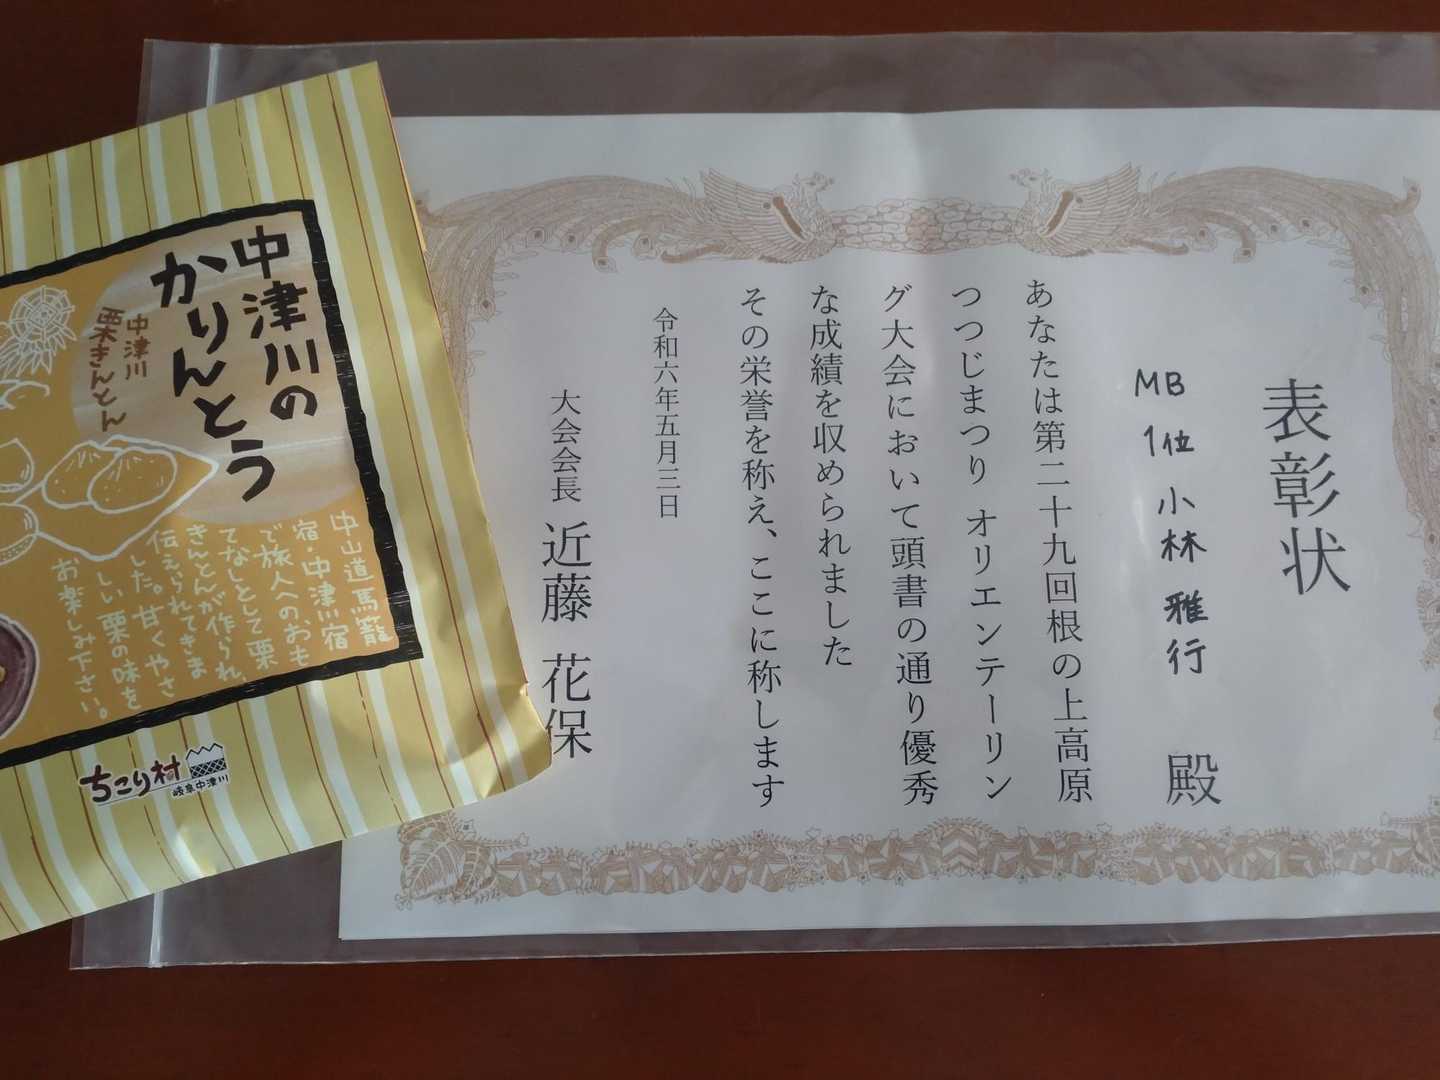 表彰状
MB 1位 小林 雅行 殿
あなたは第二十九回根の上高原
つつじまつり オリエンテーリン
グ大会において頭書の通り優秀
な成績を収められました
その栄誉を称え、ここに称します
令和六年五月三日
大会会長 近藤 花保
中津川の
かりんとう
中津川
栗きんとん
中山道馬籠
宿・中津川宿
で旅人へのおも
てなしとして栗
きんとんが作られ、
伝えられてきま
した。甘くやさ
しい栗の味を
お楽しみ下さい。
ちこり村
岐阜中津川